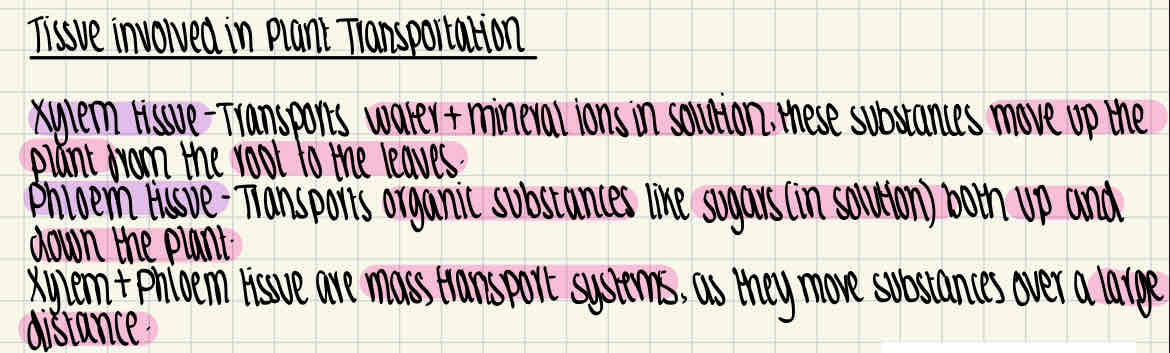 Tissue involved in Plant Transportation
Xylem tissue - Transports water + mineral ions in solution, these substances move up the
plant from the root to the leaves.
Phloem tissue - Transports organic substances like sugars (in solution) both up and
down the plant.
Xylem + Phloem tissue are mass transport systems, as they move substances over a large
distance.